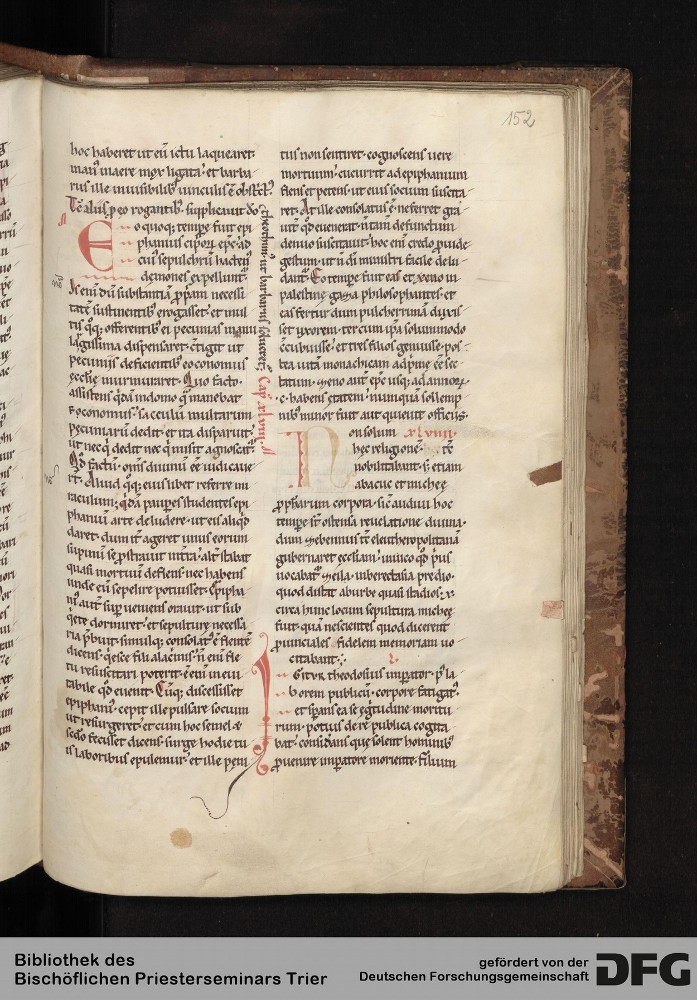 152
hoc haberet ut eū ictu laquearet·
man᷒ in aere mox ligata· et barba
rus ille inuisibilib᷒ uinculis ē
Tc̄ alijs ꝓ eo rogantib᷒· supplicauit dō·
theothim᷒ ut barbarus solueret᷑
Cap̄ xlviii
Eo quoq; tempe fuit epi
phanius cipꝛoꝝ epc̄ ad
cui᷒ sepulchrū hacten᷒
demones expellunt᷑·
Is enī dū substantiā ꝓpam necessi
tatē sustinentib᷒ erogasset· et mul
tis q;q; offerentib᷒ ei pecunias manu
largissima dispensaret· ctigit ut
pecunijs deficientib᷒ economus
ecctie murmuraret· Quo facto·
assistens qdam indomo q̄ manebat
economus· sacculū multarum
pecuniarū dedit· et ita disparuit·
ut neq̨ dedit nec q̄ misit agnoscit᷑·
Qd̄ factū· om̄s diuinū eē iudicaue
rt̄· Aliud q;q; eius libet referre mi
raculum· qdā paupes studentes epi
phaniū arte deludere· ut eis aliqd
daret· dum it̄ ageret unus eorum
supinū se ꝓstrauit in tra· alt̄ stabat
quasi mortuū deflens· nec habens
unde eū sepelire potuisset· Epipha
ni᷒ aut̄ sup̄ ueniens orauit· ut sub
qete dormiret· et sepulture necessa
ria p̄buit· simulq; consolat᷒ ē flentē
dicens· qesce fili a lacrimis· n̄ enī fle
tu resuscitari poterit· ē enī ineui
tabile qd̄ euenit· Cūq; discessisset
epiphani᷒· cepit ille pulsare socium
ut resurgeret· et cum hoc semel &
sedo fecisset dicens· surge hodie tu
is laboribus epulemur· et ille peni
tus non sentiret· cognoscens uere
mortuum· cucurrit ad epiphanium
flens et petens· ut eius socium suscita
ret· At ille consolatus ē· ne ferret gra
uit̄ qd̄ euenerat· n̄ tam defunctum
denuo suscitauit· hoc enī credo ꝓuide
gestum· ut n̄ dī ministri facile delu
dant᷑· Eo tempe fuit eas et xeno in
palestine gaza philosophantes· et
eas fertur dum pulcherrimā duxis
set uxorem· ter cum ip̄a solummodo
ccubuisse· et tres filios genuisse· pos
tea uitā monachicam adprime eē sec
tatum· xeno aut̄ epc̄ usq; ad annoꝝ
·c· habens etatem· nunquā sollemp
nib᷒ minor fuit aut quieuit officijs·
xlviiii·
Non solum
hec religione·
nobilitabant· s; etiam
abacuc et michee
ꝓphetarum corpora· sic audiui hoc
tempe st̄ ostensa reuelatione diuina·
dum zebennus tc̄ eleutheropolitanā
gubernaret ecclesiam·
uocabat᷑ zeila· uberectasia predio·
quod distat ab urbe quasi stadios· x·
circa hunc locum sepultura michee
fuit· quā nescientes quod dicerent
ꝓuinciales· fidelem memoriam uo
citabant·
Igitur theodosius impator· p̄ la
borem publicū· corpore fatigat᷒·
et sperans ea se egritudine moritu
rum· potius de re publica cogita
bat· considans que solent hominib᷒
ꝓuenire impatore moriente· filium
Bibliothek des
Bischöflichen Priesterseminars Trier
gefördert von der
Deutschen Forschungsgemeinschaft
DFG